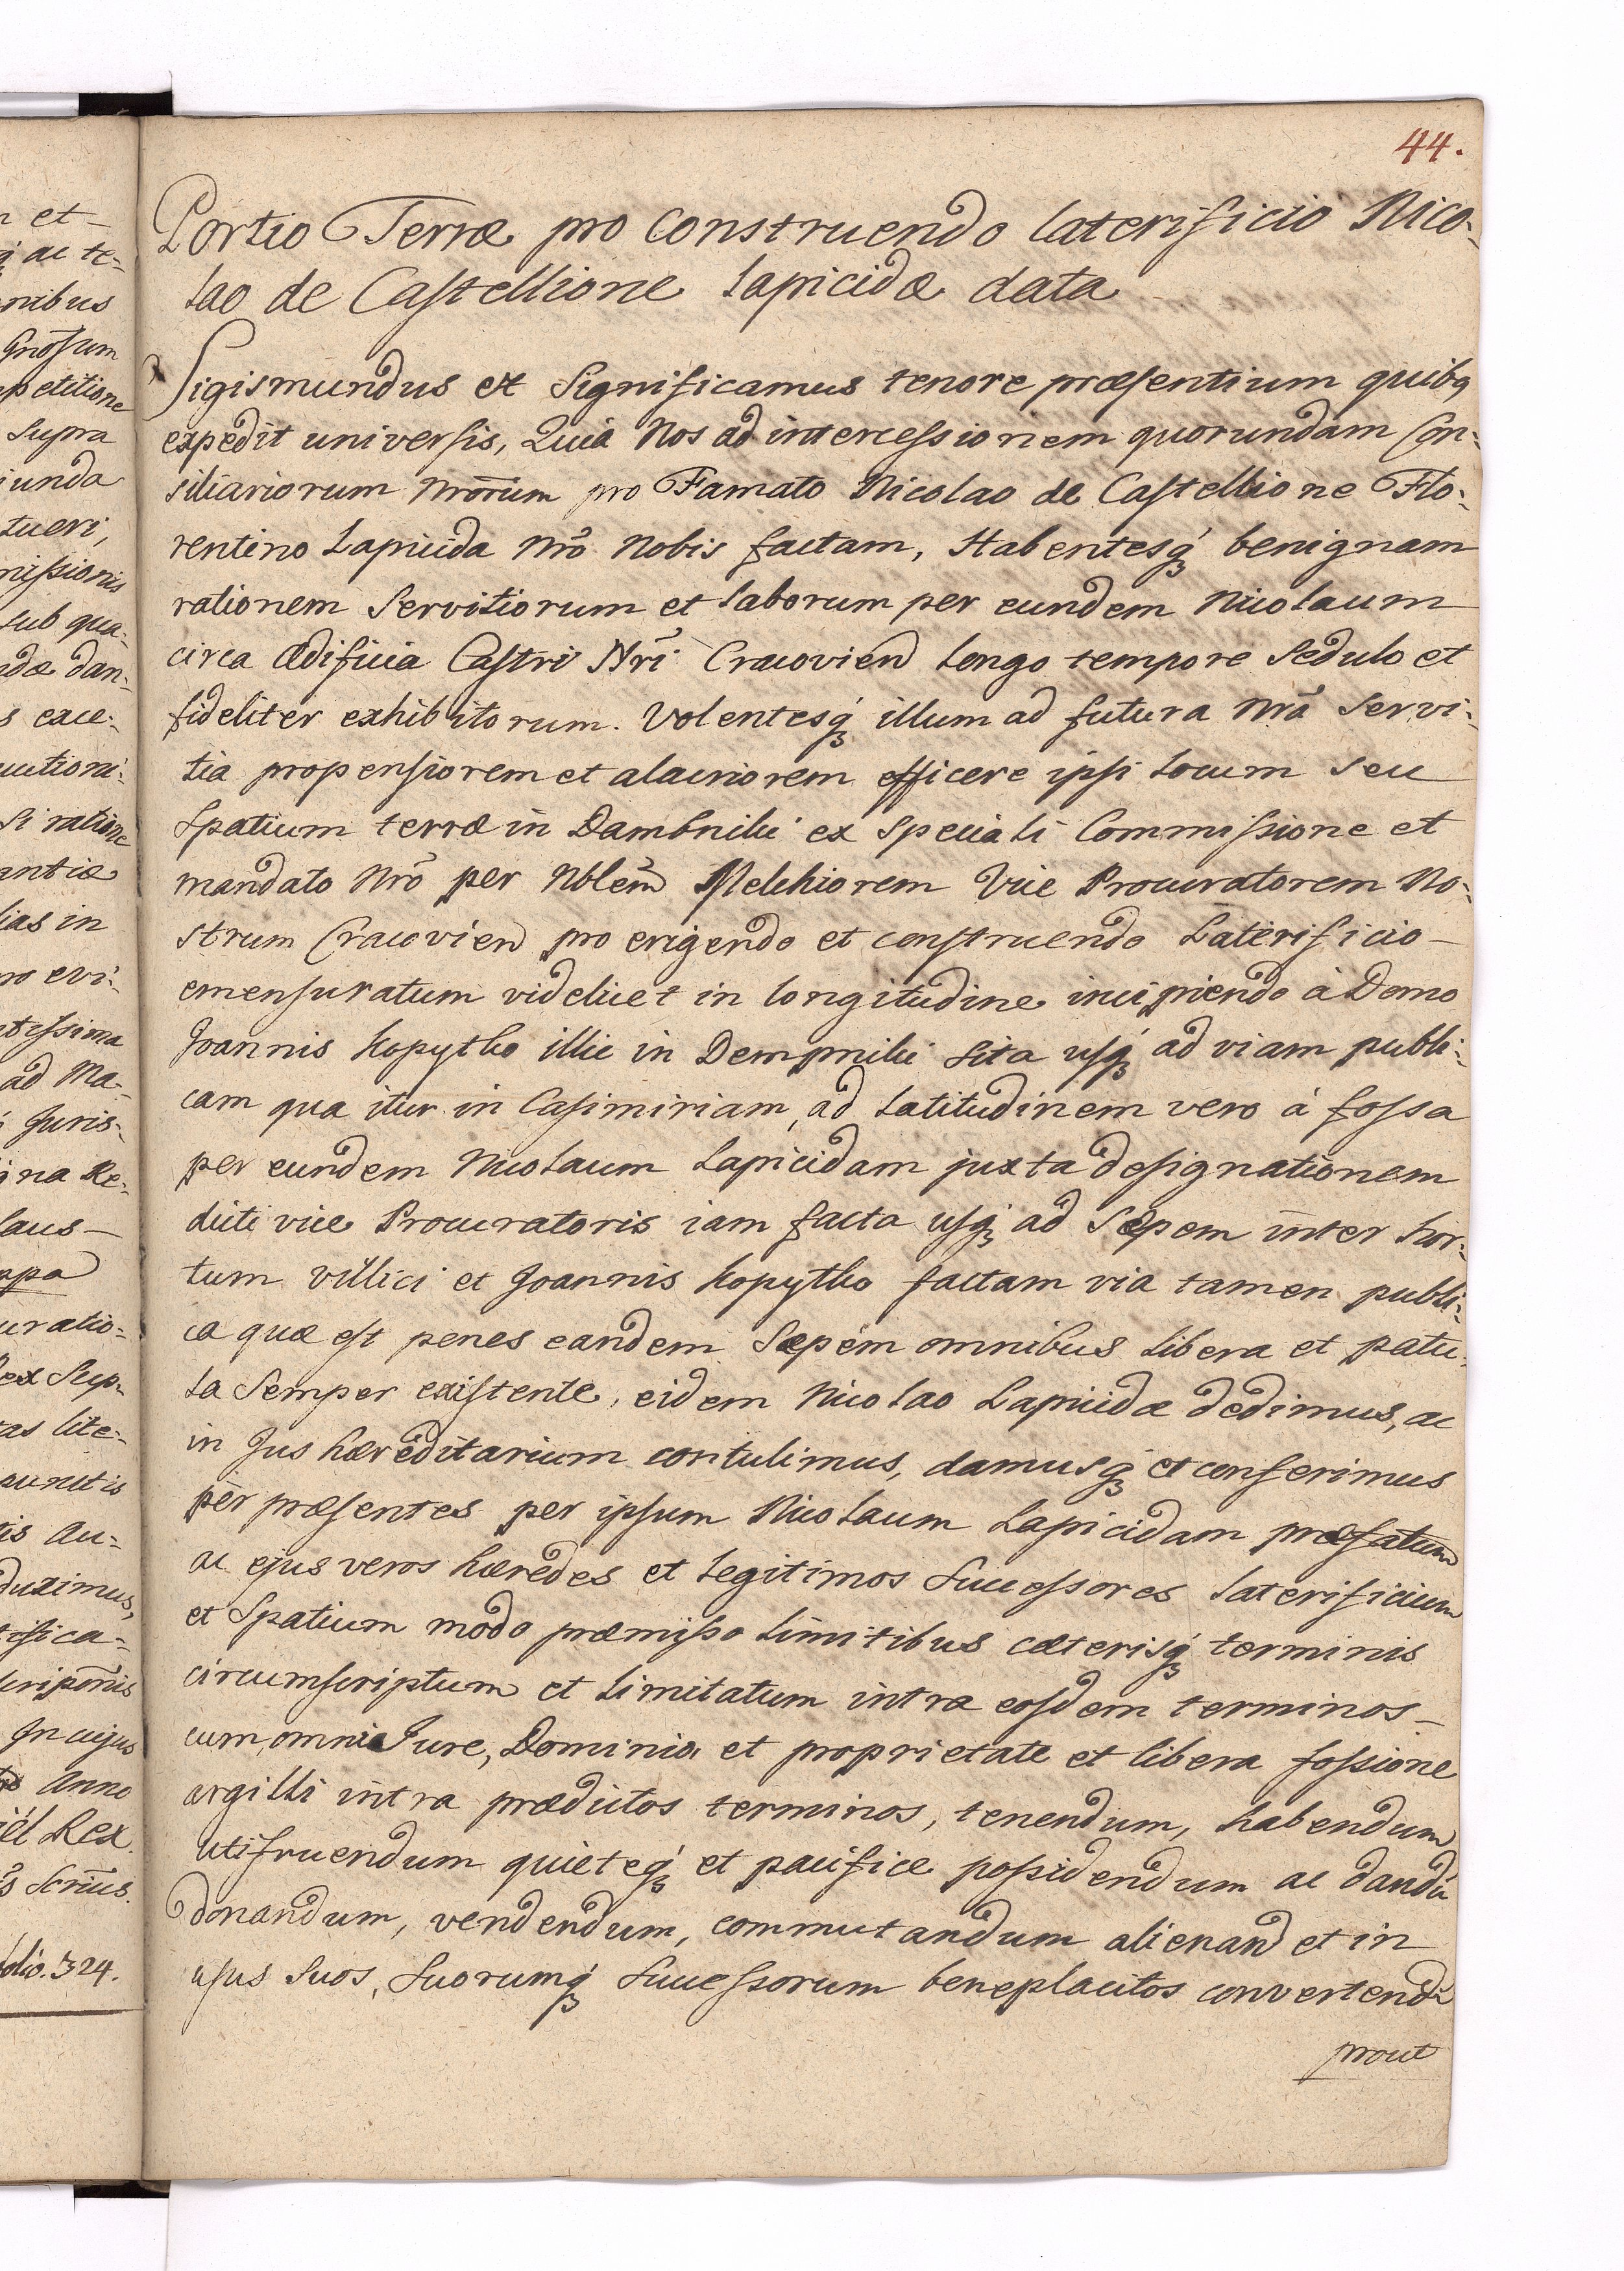 44.
Portio Terræ pro construendo laterificio Nico-
lao de Castellione lapicidæ data
Sigismundus et Significamus tenore præsentium quibq
expedit universis, Quia Nos ad intercessionem quorundam Con-
siliariorum Nrõrum pro Famato Nicolao de Castellione Flo-
rentino Lapicida Nrõ Nobis factam, Habentesq́ʒ benignam
rationem Servitiorum et laborum per eundem Nicolaum
circa ædificia Castri Nrĩ Cracovien longo tempore Sedulo et
fideliter exhibitorum. Volentesq́ʒ illum ad futura Nrã Servi-
tia propensiorem et alacriorem efficere ipsi locum seu
Spatium terræ in Dambniki ex speciali Commissione et
mandato Nrõ per Nblẽm Melchiorem Vice Procuratorem No-
strum Cracovien pro erigendo et construendo Laterificio
emensuratum videlicet in longitudine incipiendo à Domo
Joannis Kopytko illic in Dempniki sita usq́ʒ ad viam publi-
cam qua itur in Casimiriam, ad latitudinem vero à fossa
per eundem Nicolaum Lapicidam juxta designationem
dicti vice Procuratoris iam facta usq́ʒ ad Sæpem inter hor-
tum villici et Joannis Kopytko factam via tamen publi-
ca quæ est penes eandem Sæpem omnibus libera et patu-
la Semper existente, eidem Nicolao Lapicidæ dedimus, ac
in Jus hæreditarium contulimus, damusq́ʒ et conferimus
per præsentes per ipsum Nicolaum Lapicidam præfatum
ac ejus veros hæredes et legitimos Successores laterificium
et Spatium modo præmisso limitibus cæterisq́ʒ terminis
circumscriptum et limitatum intra eosdem terminos
cum omni Jure, Dominio et proprietate et libera fossione
argilli intra prædictos terminos, tenendum, habendum
utifruendum quieteq́ʒ et pacifice possidendum ac dandũ
donandum, vendendum, commutandum alienand et in
usus suos, Suorumq́ʒ Successorum beneplacitos convertendũ
prout
n et
ac te-
nibus
Gnõsum
petitione
Supra
iunda
tueri,
missionis
sub qua-
dæ dan-
s exce-
cutioni-
Si ratione
antiæ
lias in
ro evi-
ntissima
ad Ma-
Juris-
na Re-
laus
uratio-
ex Sup-
as lite-
punctis
is Au-
duximus,
ifica-
scripõnis
In cujus
Anno
él Rex
Scrius.
folio. 324.